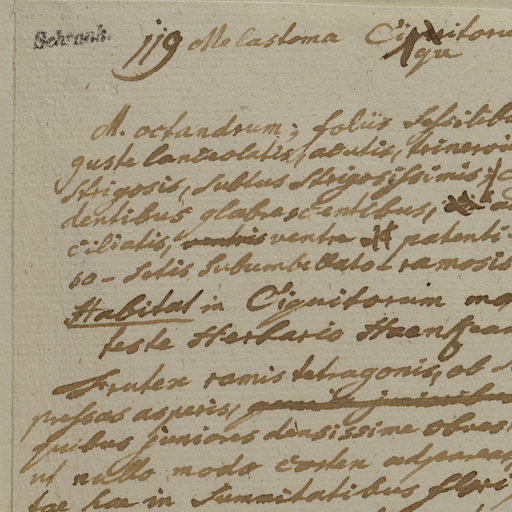 Schrank.
119 Melastoma Ciquitoru
qu
M. octandrum; foliis sessilibu
guste lanceolatis, acutis, trinervii
strigosis, subtus strigosissimis;
dentibus glabrescentibus,
ciliatis, ventre patenti-
so-setis subumbellato-ramosis
Habitat in Ciquitorum mo
teste Herbario Haenkean
Frutex ramis tetragonis, ob s
pressas asperis,
quibus juniores densissime obves
ut nullo modo cortex adpareat
tae hae in summitatibus flori